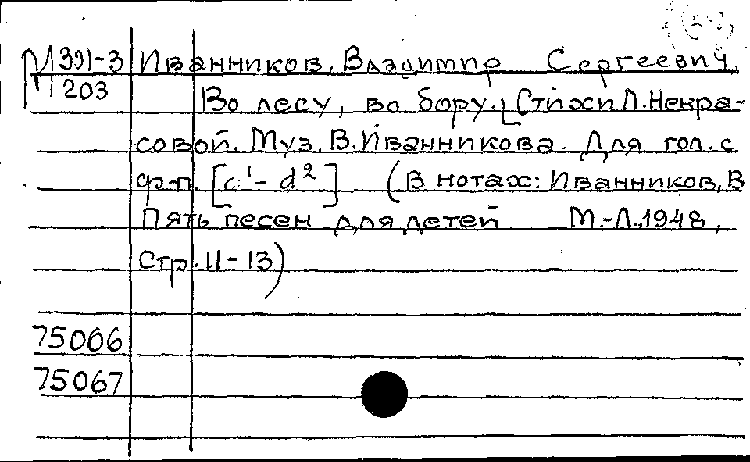 М 391-3 Иванников, Владимир Сергеевич.
203 Во лесу, во бору. [Стихи Л. Некра-
совой. Муз. В. Иванникова. Для гол. с
ф.-п. [c¹-d²] (В нотах: Иванников, В
Пять песен для детей М.-Л., 1948,
стр. 11-13)
75066
75067